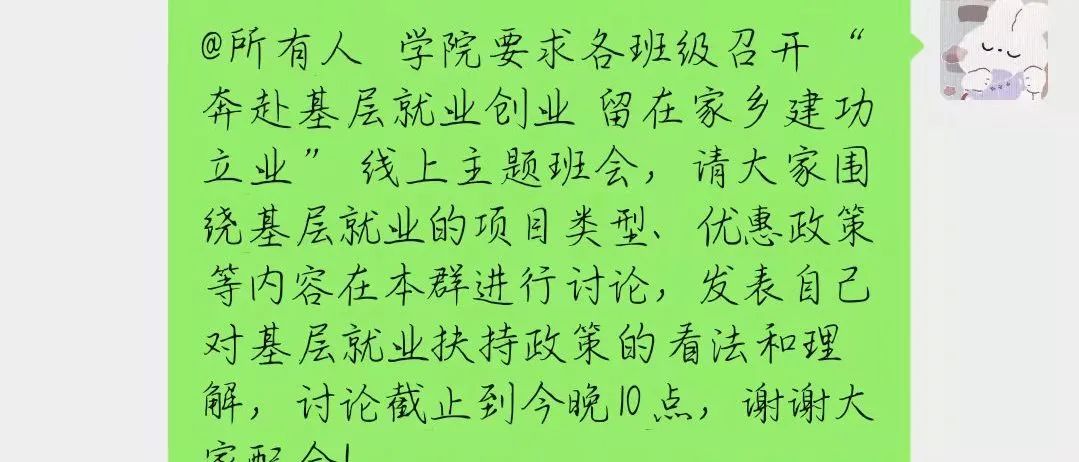 @所有人 学院要求各班级召开“
奔赴基层就业创业 留在家乡建功
立业” 线上主题班会，请大家围
绕基层就业的项目类型、优惠政策
等内容在本群进行讨论，发表自己
对基层就业扶持政策的看法和理
解，讨论截止到今晚10点，谢谢大
家配合!